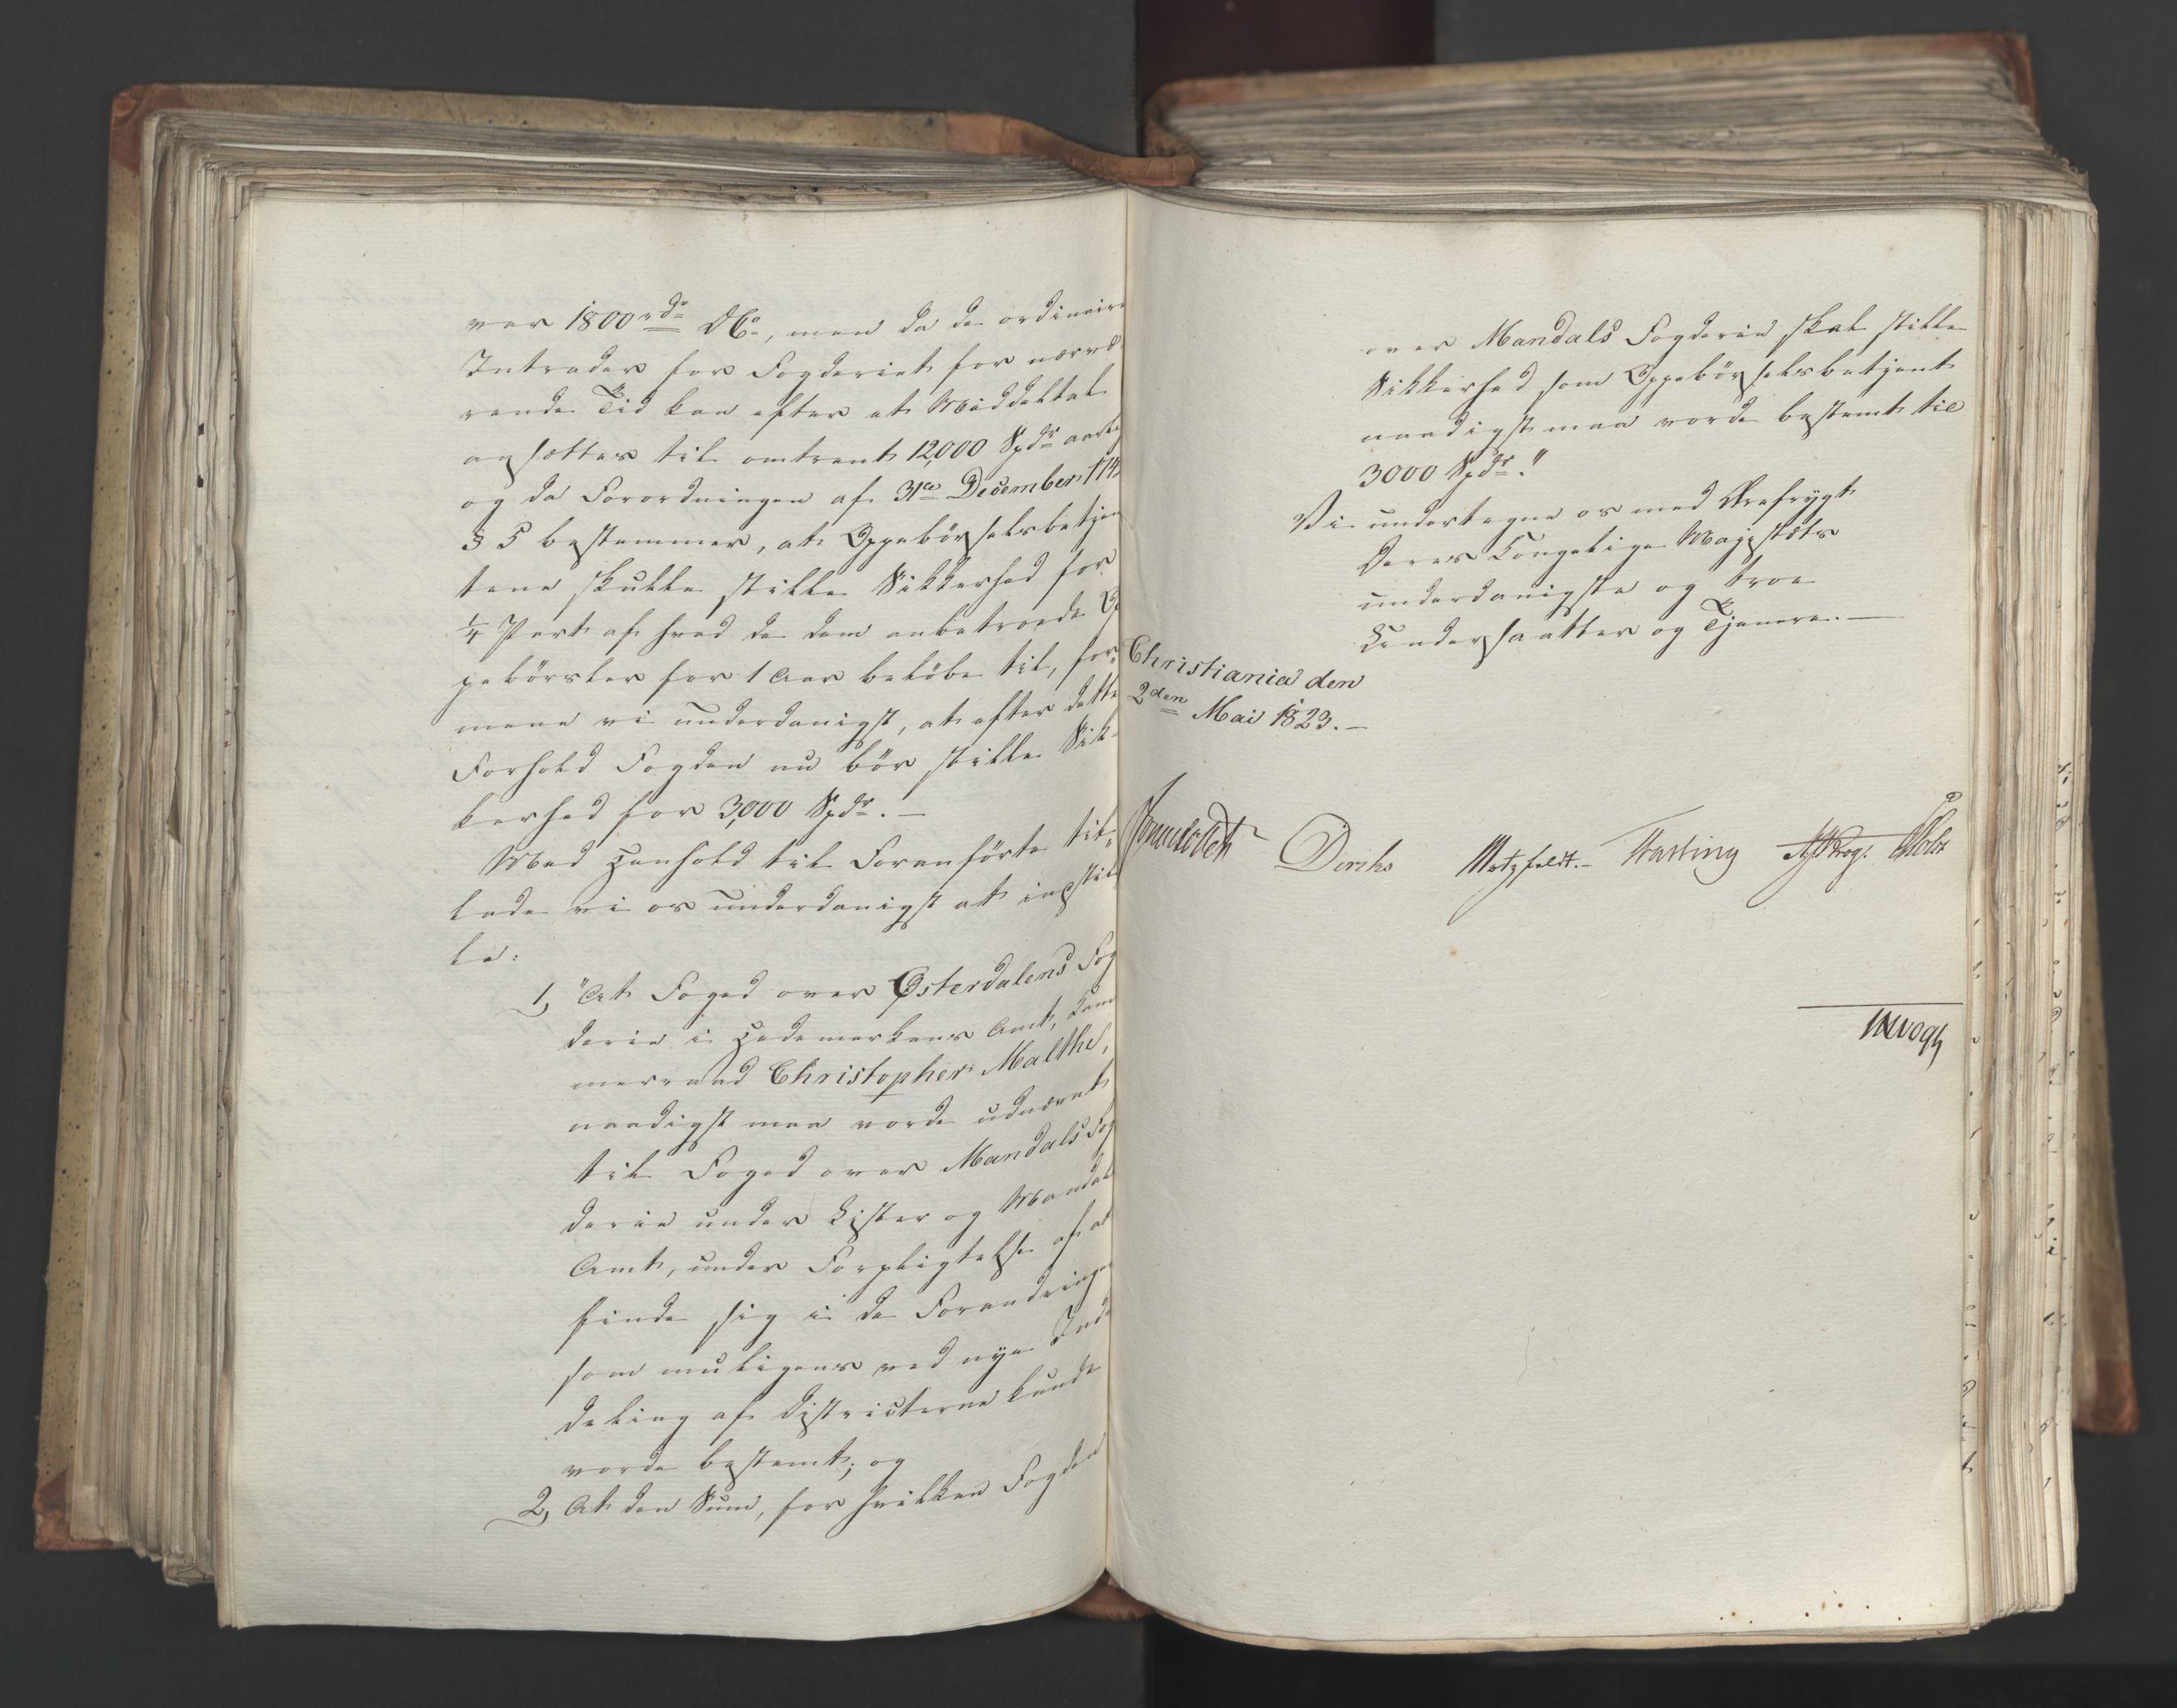 var 1800 rd. D.C., men da de ordinaire
Intrader for Fogderiet for nærvæ-
rende Tid kan efter et Middeltal
ansættes til omtrent 12,000 Spdr aarlig
og da Forordningen af 31te December 174
§ 5 bestemmer, at Oppebørselsbetjen
tene skulle stille Sikkerhed for
1/4 Part af hvad de dem anbetroede Op
pebørsler for 1 Aar beløbe til, for-
mene vi underdanigst, at efter dette
Forhold Fogden nu bør stille Sik-
kerhed for 3,000 Spdr. —
Med Henhold til Foranførte til-
lade vi os underdanigst at indstil
le:
1, "At Foged over Østerdalens Fog
derie i Hedemarkens Amt, Kam
merraad Christopher Malthe,
naadigst maa vorde udnævnt
til Foged over Mandals Fog
derie under Lister og Mandals
Amt, under Forpligtelse af at
finde sig i de Forandringer
som muligens ved nye Ind
deling af Districterne kunde
vorde bestemt; og
2, At den Sum, for hvilken Fogden
over Mandals Fogderie skal stille
Sikkerhed som Oppebørselsbetjent
naadigst maa vorde bestemt til
3000 Spdr."
Vi undertegne os med Ærefrygt
Deres Kongelige Majestæts
underdanigste og troe
Undersaatter og Tjenere. —
Christiania den
2den Mai 1823. —
Diriks Motzfeldt. Fasting Krog. Holst